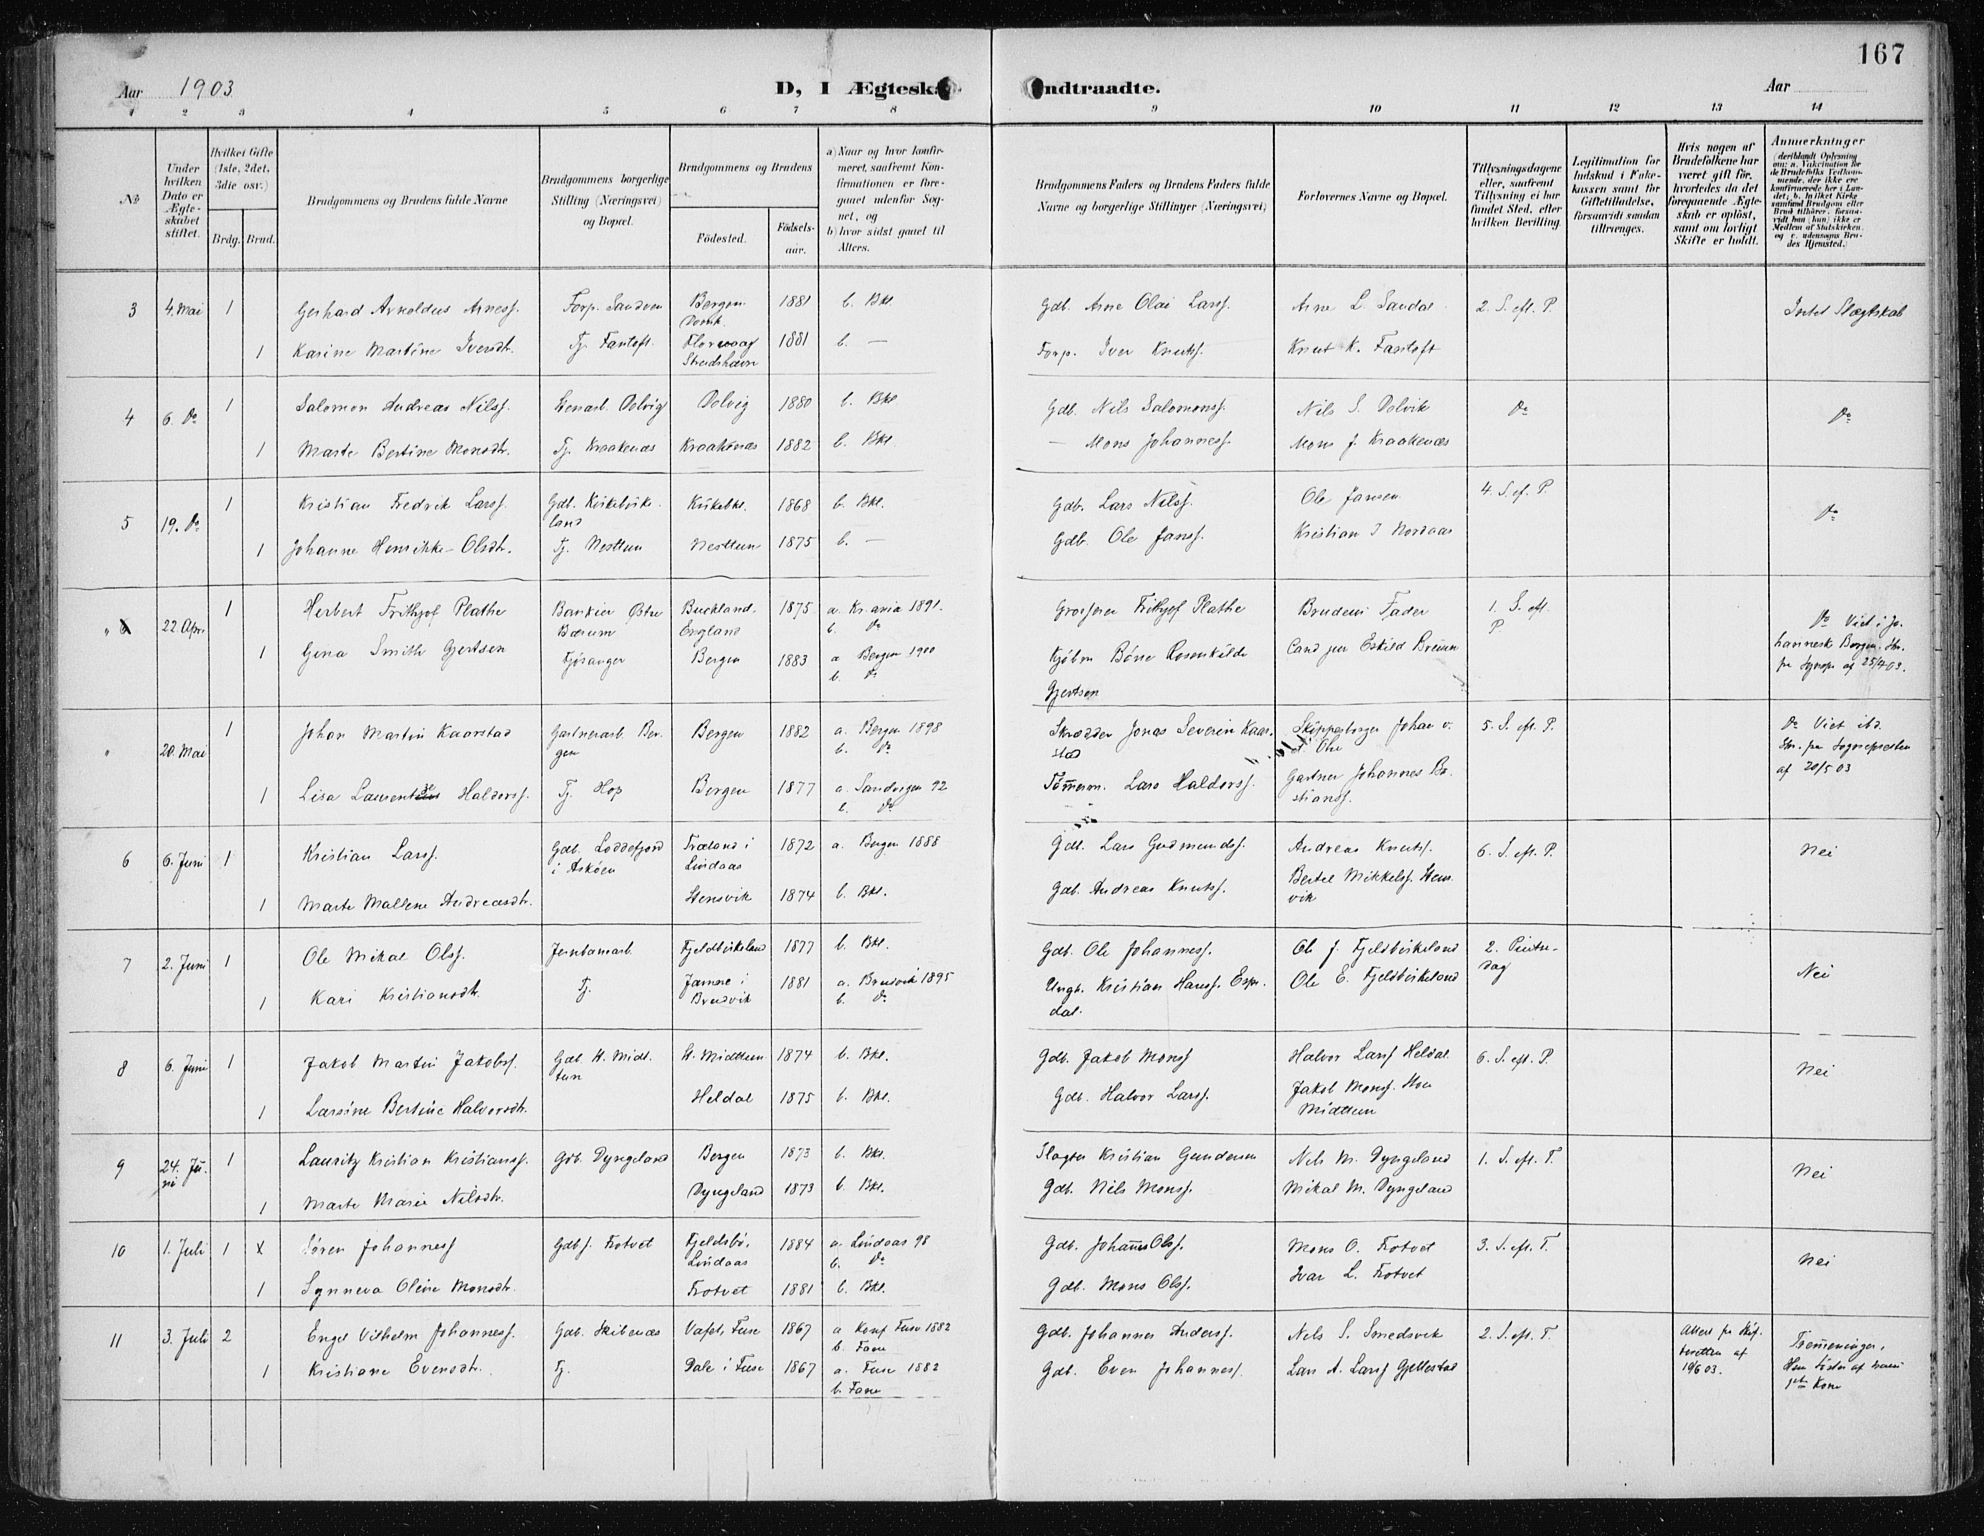 167
Aar 1903
D, I Ægteska
ndtraadte.
Aar
1 2 3 4 5 6 7 8 9 10 11 12 13 14
№
Under hvilken Dato er Ægteskabet stiftet.
Hvilket Gifte (1ste, 2det, 3die osv.)
Brdg. Brud.
Brudgommens og Brudens fulde Navne
Brudgommens borgerlige Stilling (Næringsvei) og Bopæl.
Brudgommens og Brudens
Fødested.
Fødselsaar.
a) Naar og hvor konfirmeret, saafremt Konfirmationen er foregaaet udenfor Sognet, og
b) hvor sidst gaaet til Alters.
Brudgommens Faders og Brudens Faders fulde Navne og borgerlige Stillinger (Næringsvei)
Forlovernes Navne og Bopæl.
Tillysningsdagene eller, saafremt Tillysning ei har fundet Sted, efter hvilken Bevilling.
Legitimation for Indskud i Enkekassen samt for Giftetilladelse, forsaavidt saadan tiltrænges.
Hvis nogen af Brudefolkene har været gift før, hvorledes da det foregaaende Ægteskab er opløst, samt om lovligt Skifte er holdt.
Anmerkninger (deriblandt Oplysning om: a. Vakcination for de Brudefolks Vedkommende, der ikke ere konfirmerede her i Landet; b. hvilket Kirkesamfund Brudgom eller Brud tilhører, forsaavidt han (hun) ikke er Medlem af Statskirken, og c. udensogns Brudes Hjemsted.)
3 4. Mai 1 Gerhard Arnoldus Arness. Forp. Sandven Bergen Domk. 1881 b. Bkl. Gdb. Arne Olai Larss. Arne L. Sandal 2. S. eft. P. Intet Slægtskab
1 Karine Martine Iversdt. Tj. Fantoft. 1881 b. — Forp. Iver Knuts. Knut K. Fantoft
4 6. Do 1 Salomon Andreas Nilss. Dolvig Dolvig 1880 b. Bkl Gdb. Nils Salomonss. Nils S. Dolvik Do Do
1 Marte Bertine Monsdt. Tj. Kraakenæs Kraakenæs 1882 b. Bkl. — Mons Johanness. Mons J. Kraakenæs
5 19. Do 1 Kristian Fredrik Larss. Gdb. Kirkebirkeland Kirkebkl. 1868 b. Bkl. Gdb. Lars Nilss. Ole Jansen 4. S. ef. P. Do
1 Johanne Henrikke Olsdt. Tj. Nesttun Nesttun 1875 b. — Gdb. Ole Janss. Kristian J Nordaas
" 22. Apr. 1 Herbert Frithjof Plathe Bankier Østre Bærum Buckland, England 1875 a. Kr.ania 1891. b. Do Grosserer Frithjof Plathe Brudens Fader 1. S. eft. P. Do Viet i Johannesk Bergen.
1 Gina Smith Gjertsen Fjøsanger Bergen 1883 a Bergen 1900 b. Do Kjøbm Børre Rosenkilde Gjertsen Cand jur Eskild Bruun
" 20. Mai 1 Johan Martin Kaarstad Gartnerarb. Bergen Bergen 1882 a. Bergen 1898 b. Do Skrædder Jonas Severin Kaarstad Skipperborger Johan 5. S. eft. P. Do Viet ibd. af 20/5 03
1 Lisa Laurentze Haldorss. Tj. Hop Bergen 1877 a. Sandvigen 92 b. Do Tømerm. Lars Haldorss. Gartner Johannes Bastianss.
6 6. Juni 1 Kristian Larss. Gdb. Loddefjord i Askøen Fræland i Lindaas 1872 a. Bergen 1888 Gdb. Lars Gudmundss. Andreas Knutss. 6. S. eft. P. Nei
1 Marte Mallene Andreasdt. Stensvik 1874 b. Bkl. Gdb. Andreas Knutss. Bertel Mikkelss. Stensvik
7 2. Juni 1 Ole Mikal Olss. Jernbanearb. Fjeldbirkeland 1877 b. Bkl. Gdb. Ole Johanness. Ole J. Fjeldbirkeland 2. Pintsedag Nei
1 Kari Kristiansdt. Tj. i Bruvik 1881 a. Bruvik 1895 b. Do Ungk. Kristian Hanss. Espedal. Ole E. Fjeldbirkeland
8 6. Juni 1 Jakob Martin Jakobss. Gdb. St. Midttun St. Midttun 1874 b. Bkl. Gdb. Jakob Monss Halvor Larss Heldal 6. S. eft. P. Nei
1 Larsine Bertine Halvorsdt. Heldal 1875 b. Bkl. Gdb. Halvor Larss. Jakob Monss. Midttun
9 24. Juni 1 Lauritz Kristian Kristianss. Gdb. Dyngeland Bergen 1873 b. Bkl. Slagter Kristian Gundersen Nils M. Dyngeland 1. S. eft. T. Nei
1 Marte Marie Nilsdt. Dyngeland 1873 b. Bkl. Gdb. Nils Monss. Mikal M. Dyngeland
10 1. Juli 1 x Søren Johanness Gdbs. Frotvet Fjeldsbø, Lindaas 1884 a. Lindaas 98 b. Do Gdb. Johanes Olss. Mons O. Frotvet 3. S. eft. T. Nei
1 Synneva Oline Monsdt. Frotvet 1881 b. Bkl. Gdb. Mons Olss. Ivar L. Frotvet
11 3. Juli 2 Engel Vilhelm Johanness. Gdb. Skibenæs Fuse 1867 a Konf Fuse 1882 b. Fane Gdb. Johannes Anderss. Nils S. Smedsvik 2. S. eft. T. Attest fra Skifteretten af 19/6 03. Tremeninger, Hun Søster af hans 1ste Kone
1 Kristiane Evensdt. Tj. Dale i Fuse 1867 a. Fuse 1882 b. Fane Gdb. Even Johanness. Lars A. Larss Gjellestad